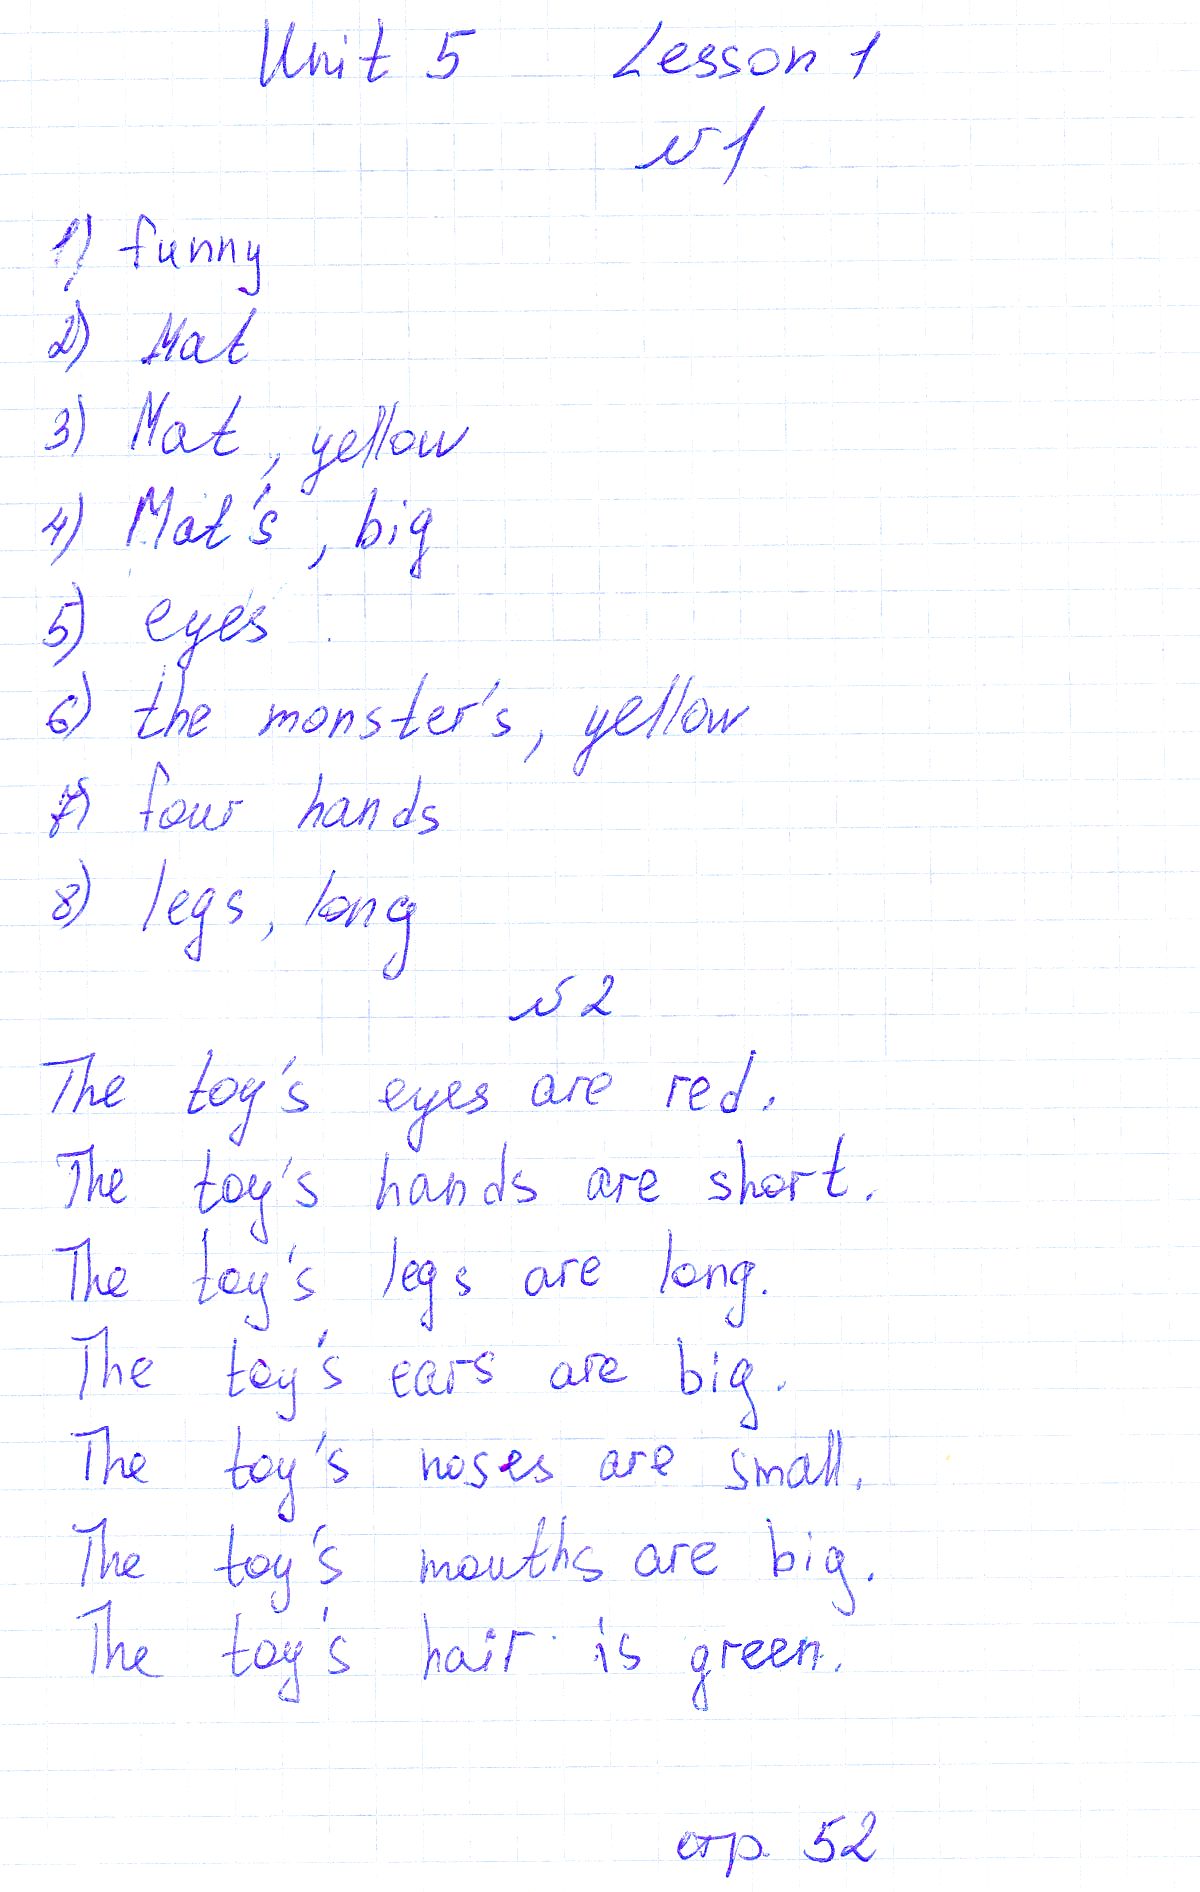 Unit 5 Lesson 1
№1
1) funny
2) Mat
3) Mat, yellow
4) Mat's, big
5) eyes
6) the monster's, yellow
7) four hands
8) legs, long
№2
The toy's eyes are red.
The toy's hands are short.
The toy's legs are long.
The toy's ears are big.
The toy's noses are small.
The toy's mouths are big.
The toy's hair is green.
стр. 52